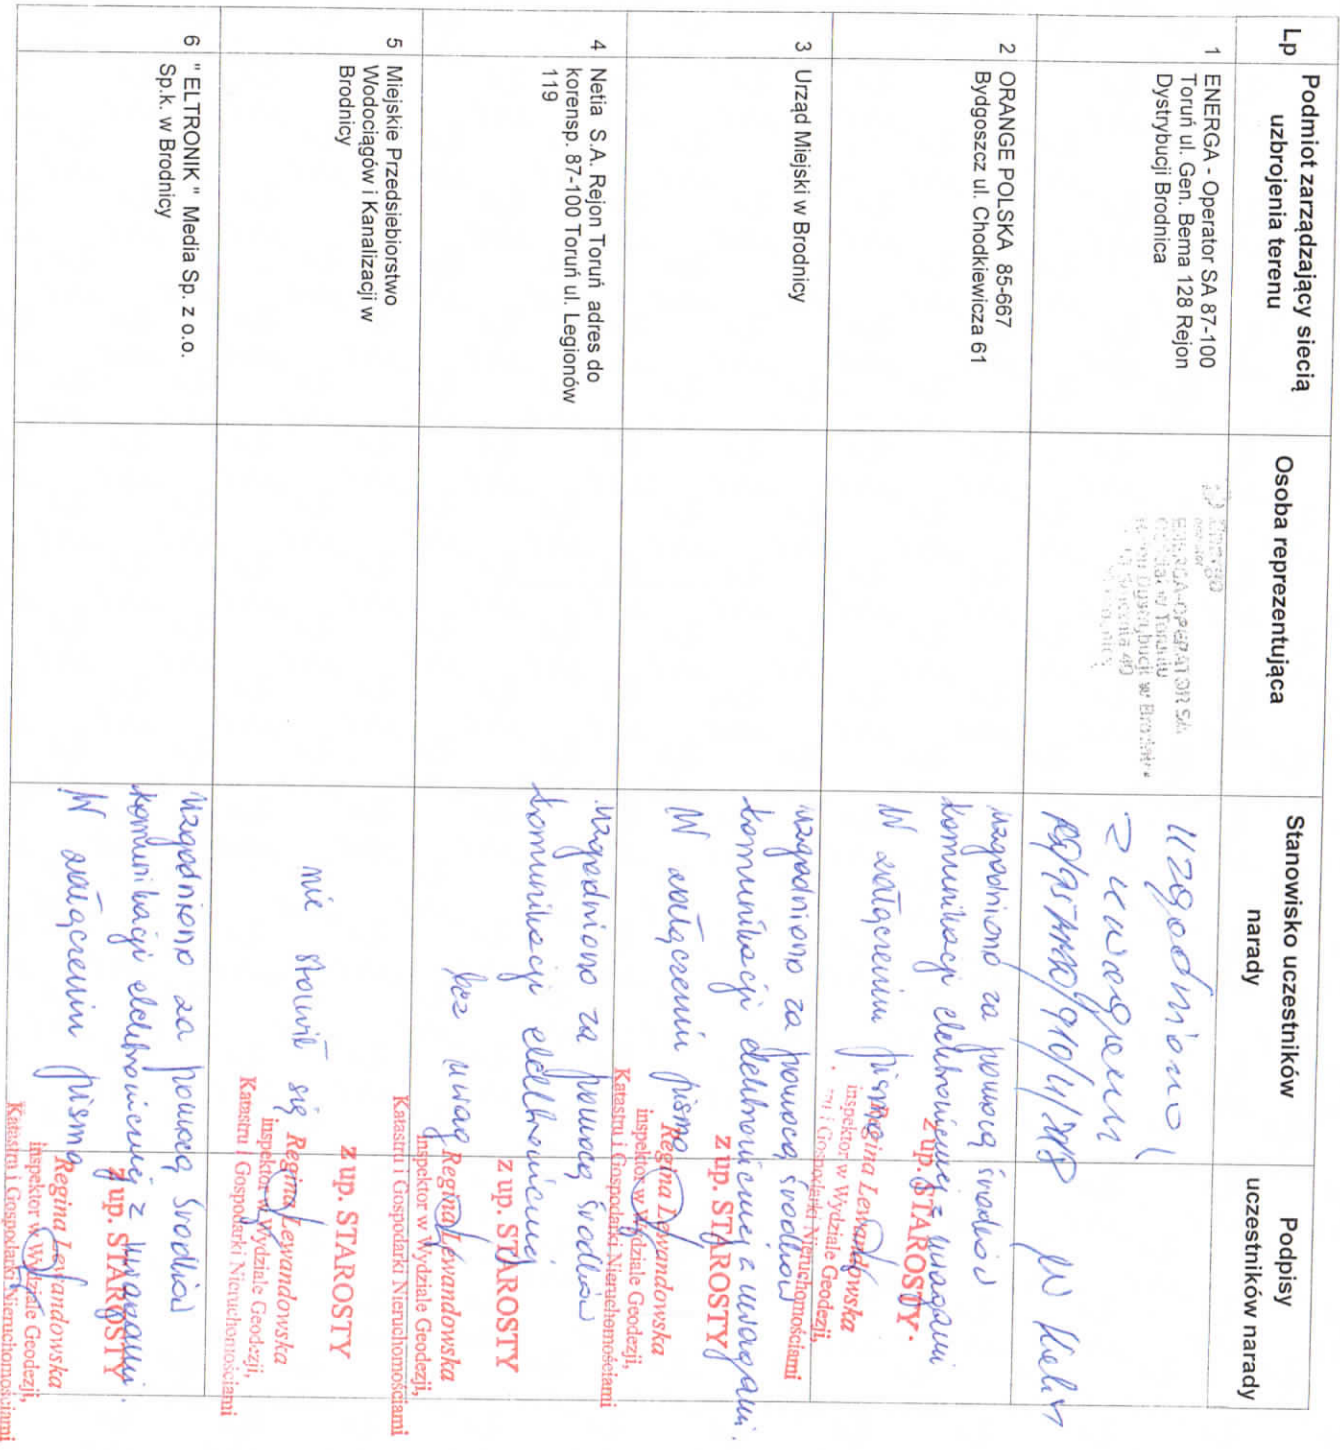 Lp
Podmiot zarządzający siecią
uzbrojenia terenu
Osoba reprezentująca
Stanowisko uczestników
narady
Podpisy
uczestników narady
1
ENERGA - Operator SA 87-100
Toruń ul. Gen. Bema 128 Rejon
Dystrybucji Brodnica
ENERGA-OPERATOR SA
Oddział w Toruniu
Rejon Dystrybucji w Brodnicy
Uzgodniono
z uwagami
2
ORANGE POLSKA 85-667
Bydgoszcz ul. Chodkiewicza 61
uzgodniono za pomocą środków
komunikacji elektronicznej z uwagami
w załączeniu pismo
z up. STAROSTY
Regina Lewandowska
inspektor w Wydziale Geodezji,
i Gospodarki Nieruchomościami
3
Urząd Miejski w Brodnicy
uzgodniono za pomocą środków
komunikacji elektronicznej z uwagami.
W załączeniu pismo
z up. STAROSTY
Regina Lewandowska
inspektor w Wydziale Geodezji,
Katastru i Gospodarki Nieruchomościami
4
Netia S.A. Rejon Toruń adres do
korensp. 87-100 Toruń ul. Legionów
119
uzgodniono za pomocą środków
komunikacji elektronicznej
bez uwag
z up. STAROSTY
Regina Lewandowska
inspektor w Wydziale Geodezji,
Katastru i Gospodarki Nieruchomościami
5
Miejskie Przedsiebiorstwo
Wodociągów i Kanalizacji w
Brodnicy
nie stawił się
z up. STAROSTY
Regina Lewandowska
inspektor w Wydziale Geodezji,
Katastru i Gospodarki Nieruchomościami
6
" ELTRONIK " Media Sp. z o.o.
Sp.k. w Brodnicy
uzgodniono za pomocą środków
komunikacji elektronicznej z uwagami.
W załączeniu pismo
z up. STAROSTY
Regina Lewandowska
inspektor w Wydziale Geodezji,
Katastru i Gospodarki Nieruchomościami